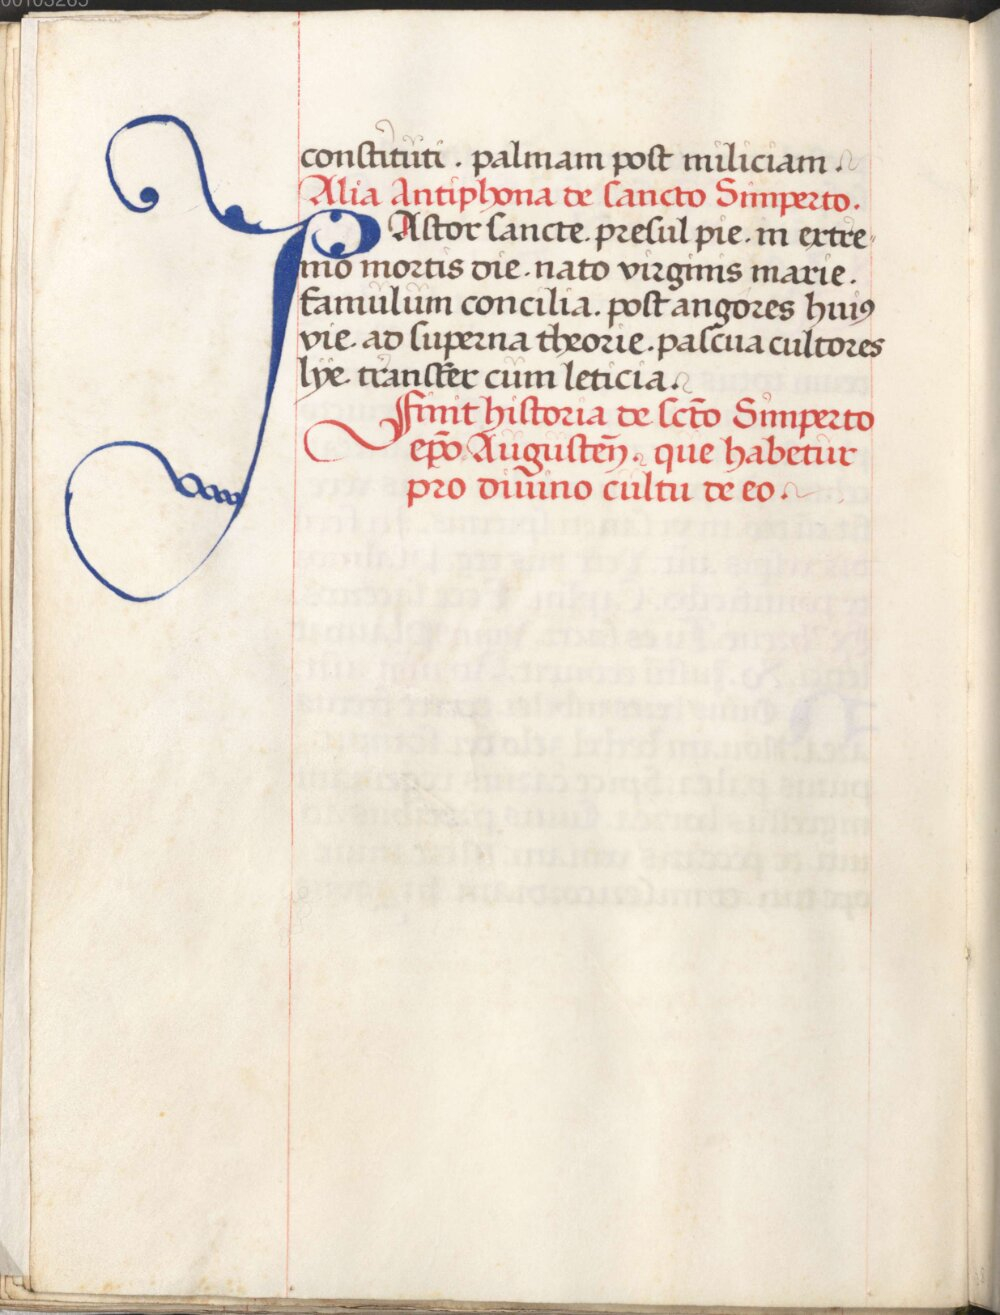 constituti . palmam post miliciam .
Alia Antiphona de sancto Simperto .
PAstor sancte . presul pie . in extre-
mo mortis die . nato virginis marie .
famulum concilia . post angores huiꝯ
vie . ad superna theorie . pascua cultores
lye transfer cum leticia .
Finit historia de scto Simperto
epo Augusteñ . que habetur
pro diuino cultu de eo .